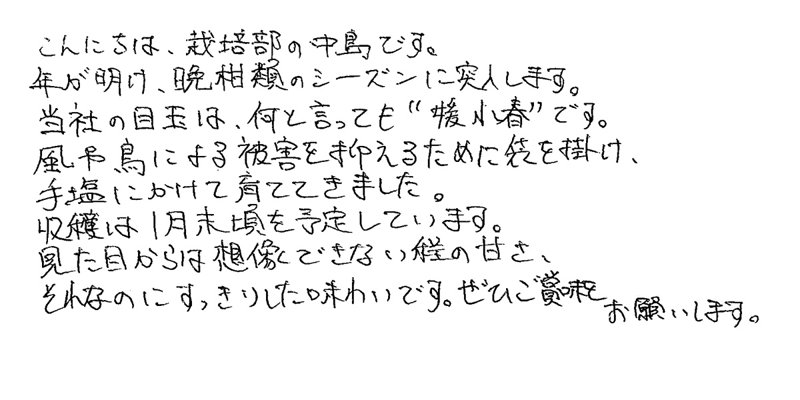 こんにちは、栽培部の中島です。
年が明け、晩柑類のシーズンに突入します。
当社の目玉は、何と言っても“媛小春”です。
風や鳥による被害を抑えるために袋を掛け、
手塩にかけて育ててきました。
収穫は1月末頃を予定しています。
見た目からは想像できない程の甘さ、
それなのにすっきりした味わいです。ぜひご賞味をお願いします。